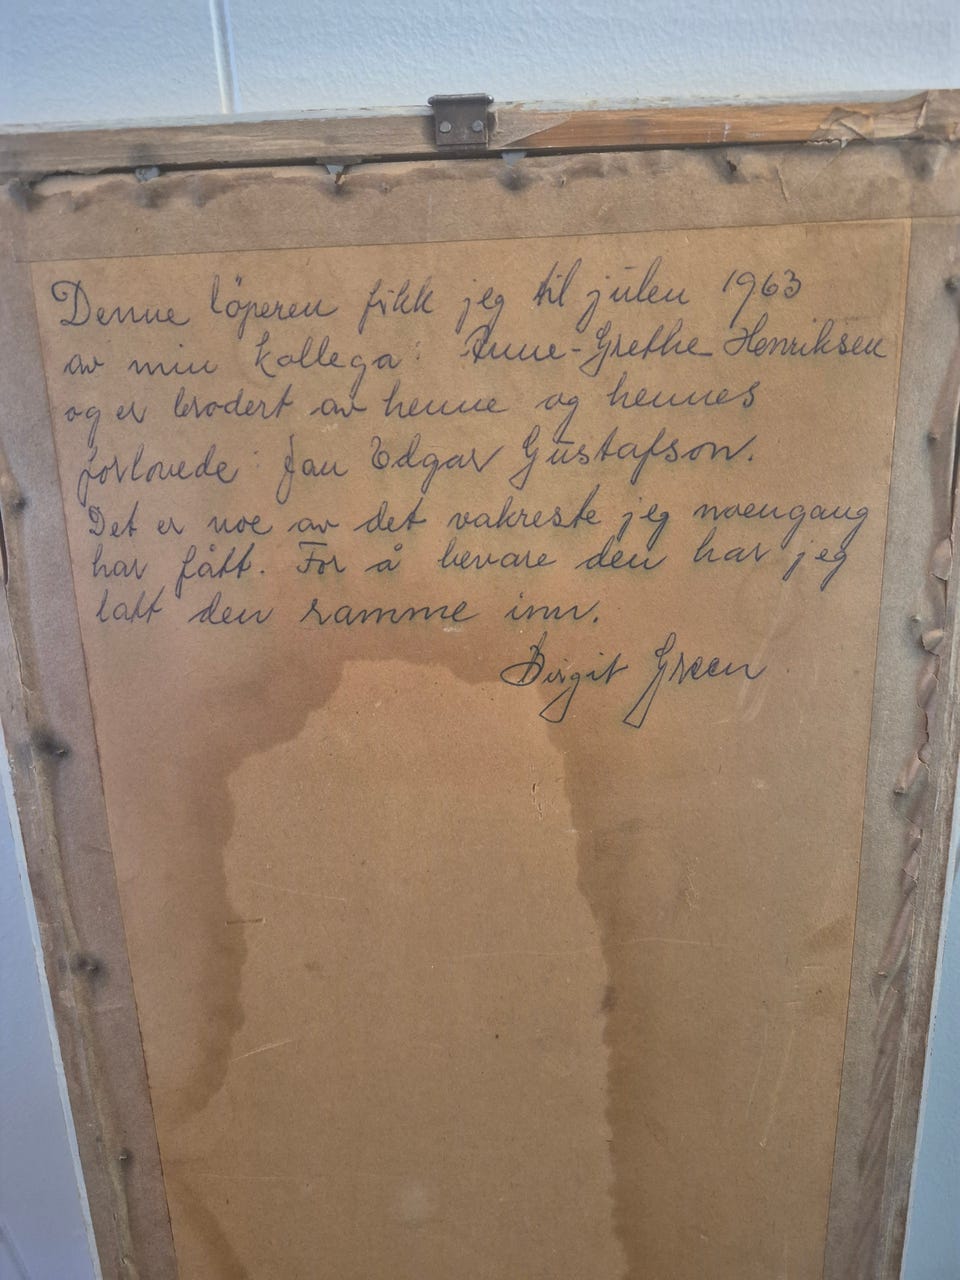 Denne löperen fikk jeg til julen 1963
av min kollega: Anne-Grethe Henriksen
og er brodert av henne og hennes
forlovede: Jan Edgar Gustafson.
Det er noe av det vakreste jeg noengang
har fått. For å bevare den har jeg
latt den ramme inn.
Birgit Green